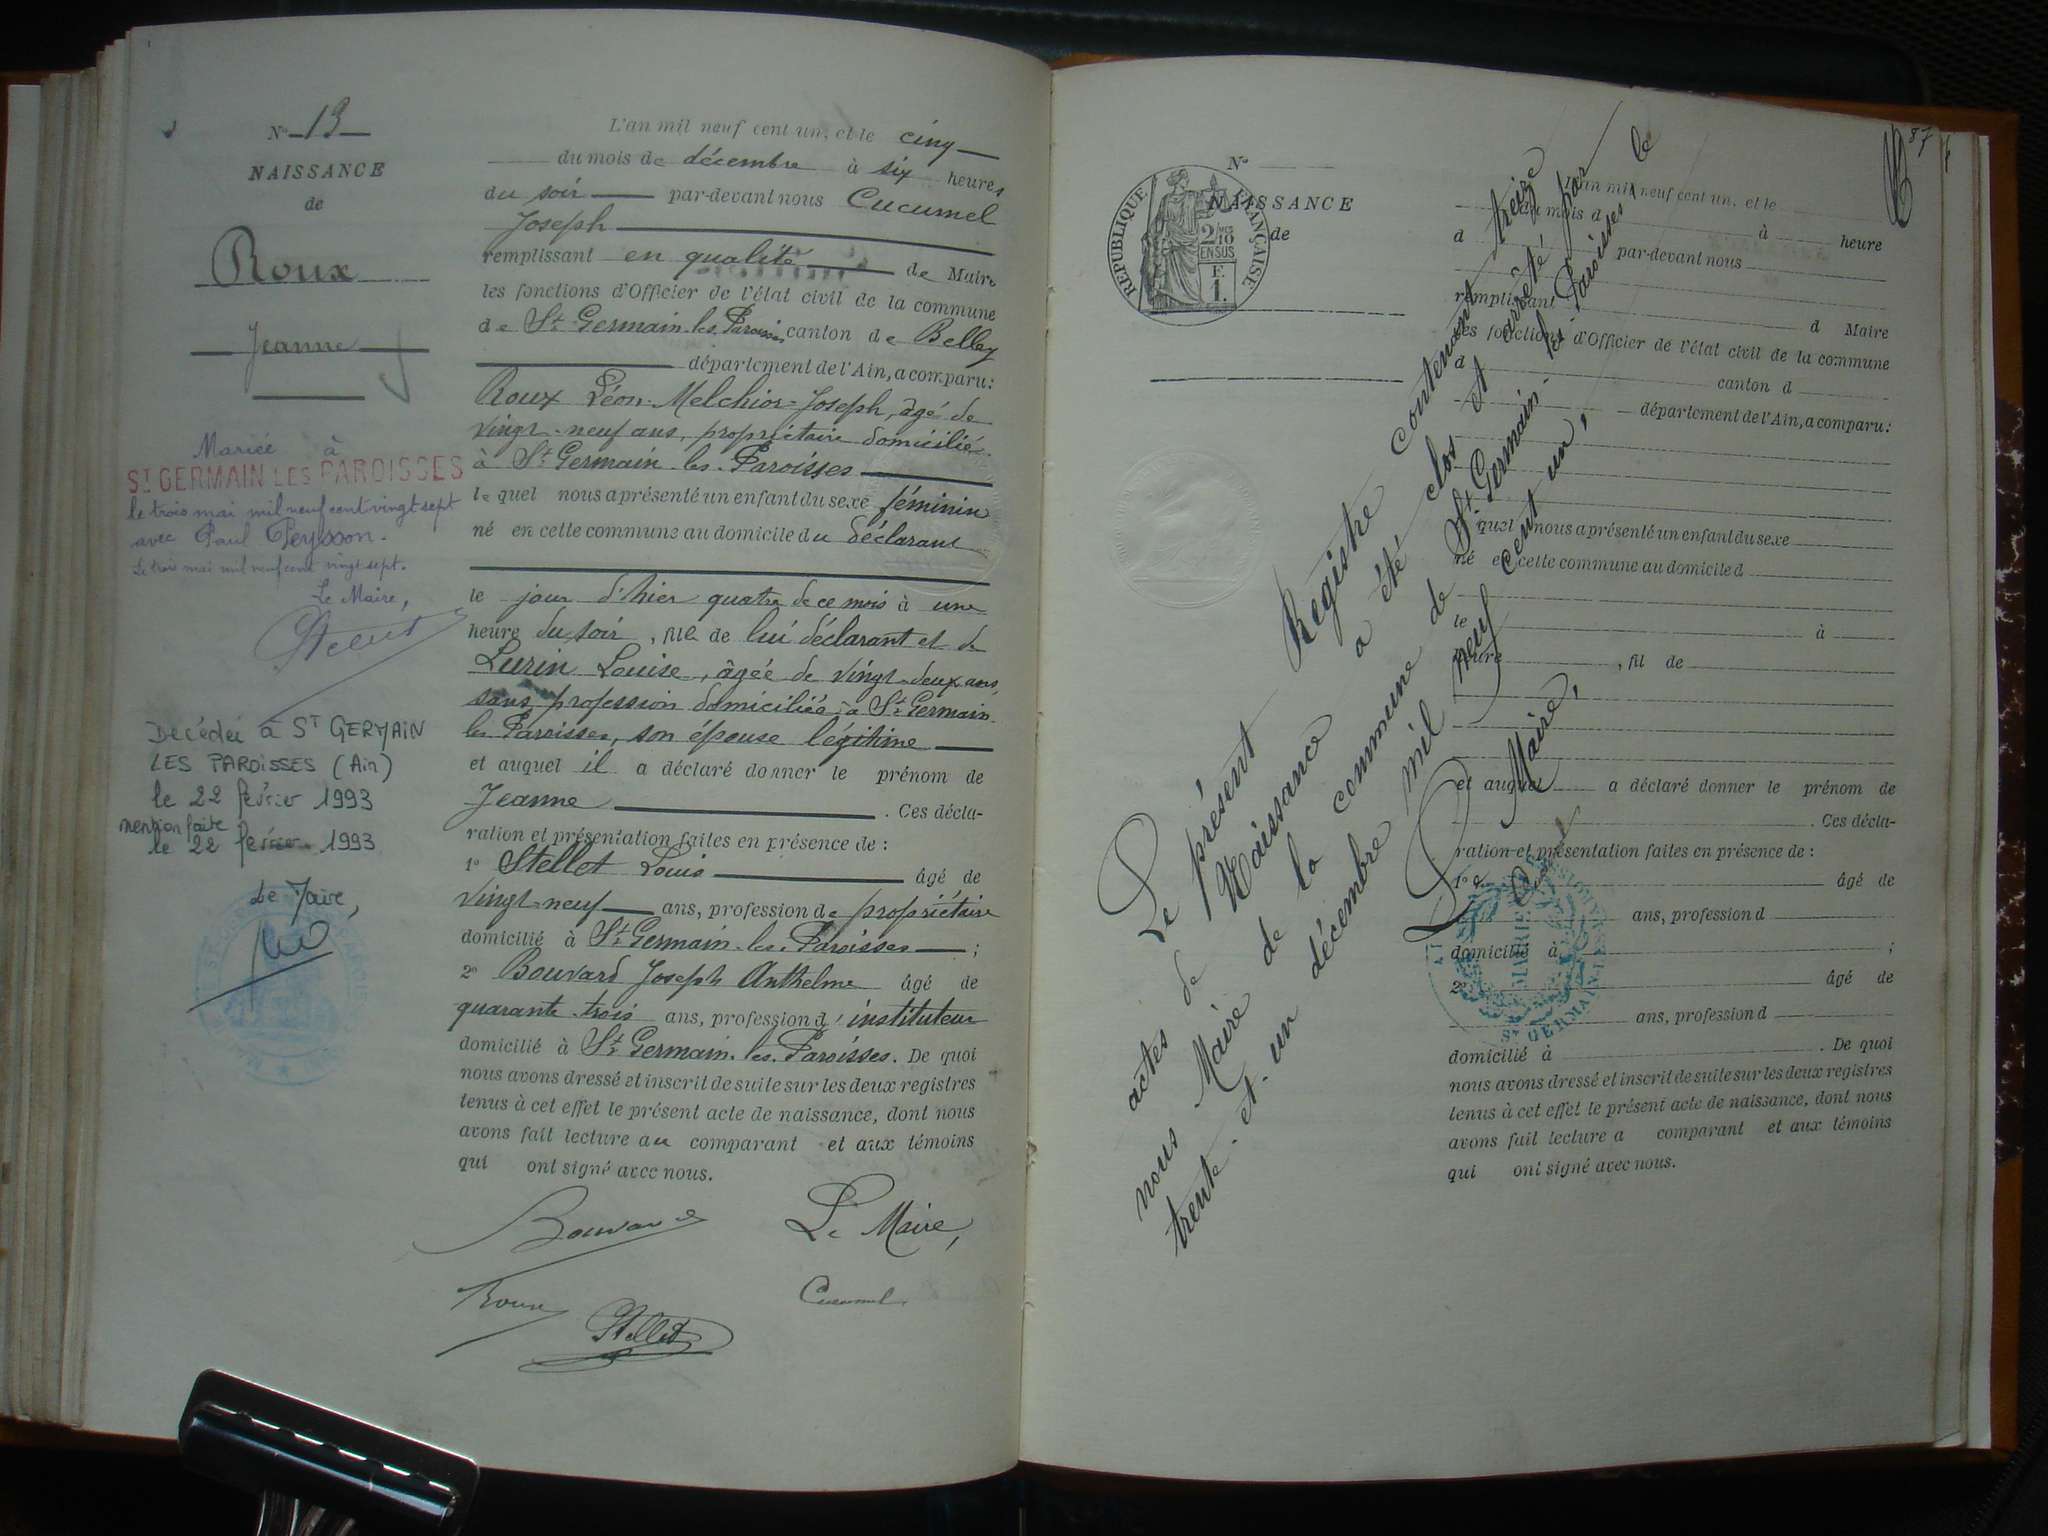 N° 13
NAISSANCE
de
Roux
Jeanne
Mariée à
ST GERMAIN LES PAROISSES
le trois mai mil neuf cent vingt sept
avec Paul Peysson.
Le trois mai mil neuf cent vingt sept.
Le Maire,
Décédée à ST GERMAIN
LES PAROISSES (Ain)
le 22 février 1993
mention faite
le 22 février 1993
Le Maire,
L'an mil neuf cent un, et le cinq
du mois de décembre à six heures
du soir par-devant nous Cucumel
Joseph
remplissant en qualité de Maire
les fonctions d'Officier de l'état civil de la commune
de St Germain-les-Paroisses canton de Belley
département de l'Ain, a comparu:
Roux Léon-Melchior-Joseph, âgé de
vingt-neuf ans, propriétaire domicilié
à St Germain-les-Paroisses
le quel nous a présenté un enfant du sexe féminin
né en cette commune au domicile du déclarant
le jour d'hier quatre de ce mois à une
heure du soir, fille de lui déclarant et de
Lurin Louise, âgée de vingt-deux ans,
sans profession domiciliée à St Germain-
les-Paroisses, son épouse légitime
et auquel il a déclaré donner le prénom de
Jeanne . Ces décla-
ration et présentation faites en présence de :
1° Stellet Louis âgé de
vingt-neuf ans, profession de propriétaire
domicilié à St Germain-les-Paroisses ;
2° Bouvard Joseph Anthelme âgé de
quarante-trois ans, profession d'instituteur
domicilié à St Germain-les-Paroisses. De quoi
nous avons dressé et inscrit de suite sur les deux registres
tenus à cet effet le présent acte de naissance, dont nous
avons fait lecture au comparant et aux témoins
qui ont signé avec nous.
Bouvard
Le Maire,
Roux
Cucumel
Stellet
87
N°
NAISSANCE
de
REPUBLIQUE FRANÇAISE
2/10
EN SUS
F.
1.
L'an mil neuf cent un, et le
du mois d à heure
d par-devant nous
remplissant d Maire
les fonctions d'Officier de l'état civil de la commune
d canton d
département de l'Ain, a comparu:
quel nous a présenté un enfant du sexe
né en cette commune au domicile d
le à
heure , fil de
et auquel a déclaré donner le prénom de
. Ces décla-
ration et présentation faites en présence de :
1° âgé de
ans, profession d
domicilié à ;
2° âgé de
ans, profession d
domicilié à . De quoi
nous avons dressé et inscrit de suite sur les deux registres
tenus à cet effet le présent acte de naissance, dont nous
avons fait lecture a comparant et aux témoins
qui ont signé avec nous.
Le présent Registre contenant treize
actes de Naissance a été clos et arrêté par
nous Maire de la commune de St Germain-les-Paroisses, le
trente-et-un décembre mil neuf cent un,
Le Maire,
MAIRIE
ST GERMAIN